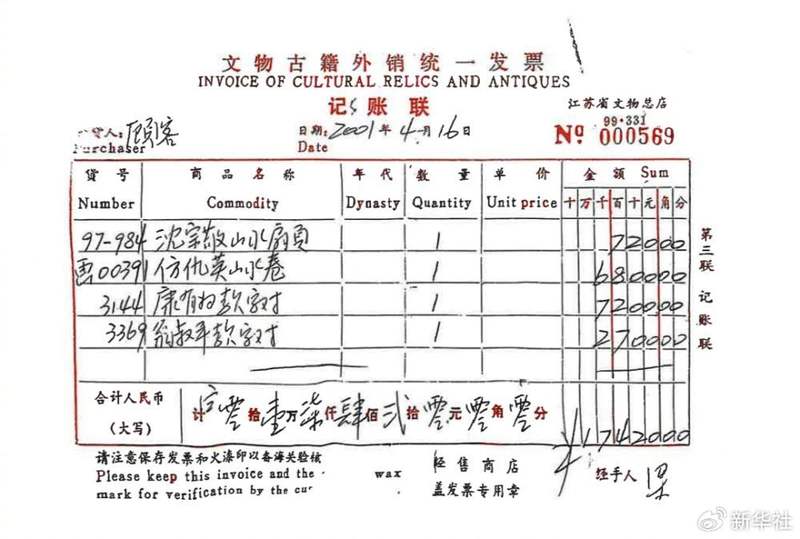 文物古籍外销统一发票
INVOICE OF CULTURAL RELICS AND ANTIQUES
记账联
江苏省文物总店
99·331
货人：顾客
Purchaser
日期：2001年4月16日
Date
№ 000569
货号 商品名称 年代 数量 单价 金额 Sum
Number Commodity Dynasty Quantity Unit price 十万千百十元角分
97-984 沈宗敬山水扇頁 1 72000
画00391 仿仇英山水卷 1 680000
3144 康有为款字对 1 720000
3369 翁叔平款字对 1 270000
第三联 记账联
合计人民币
（大写）
计 零拾壹万柒仟肆佰贰拾零元零角零分
¥1742000
请注意保存发票和火漆印以备海关验核
Please keep this invoice and the wax
mark for verification by the cur
经售商店
盖发票专用章
经手人
新华社